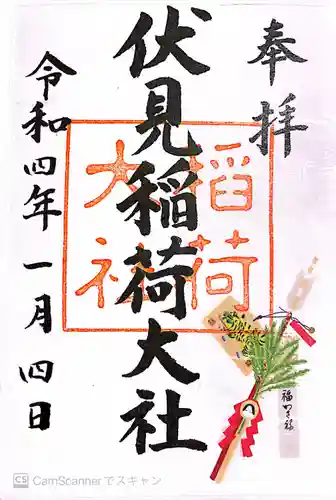 奉拝
伏見稲荷大社
令和四年一月四日
稲荷
大社
CS CamScannerでスキャン